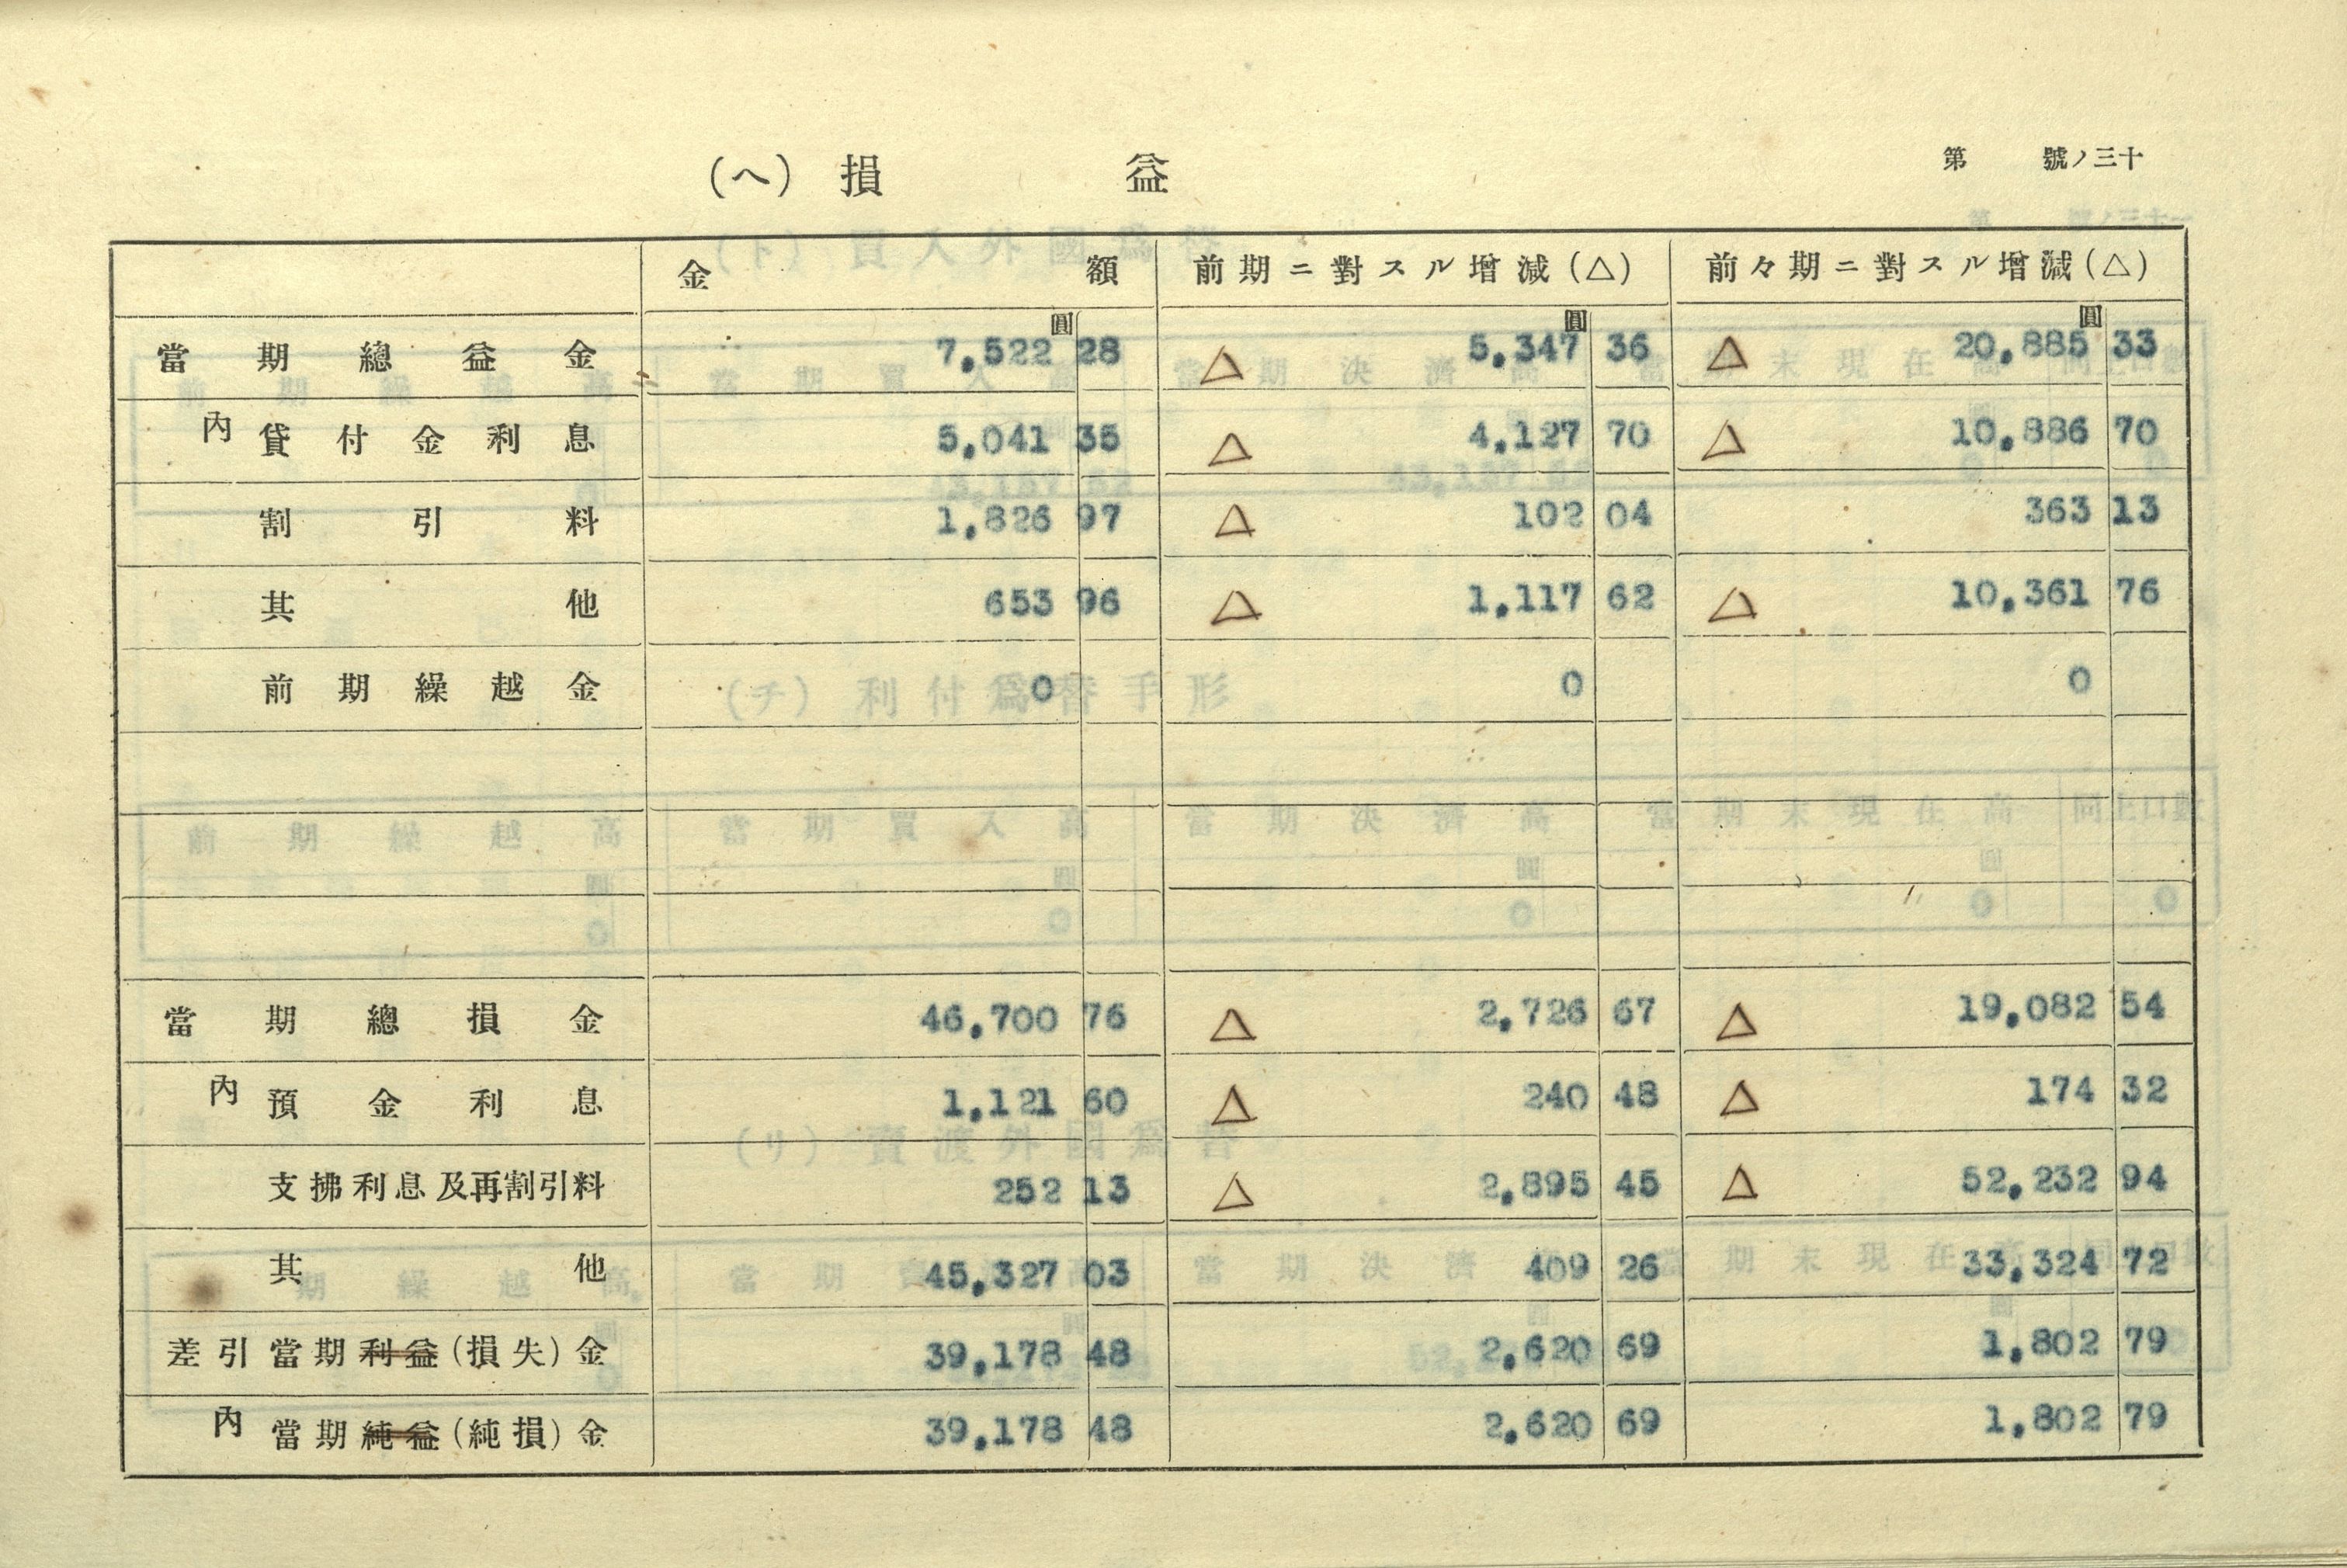 第 號ノ三十
(ヘ) 損 益
金 額 前期ニ對スル增減(△) 前々期ニ對スル增減(△)
圓 圓 圓
當期總益金 7,522 28 △ 5,347 36 △ 20,885 33
內 貸付金利息 5,041 35 △ 4,127 70 △ 10,886 70
割引料 1,826 97 △ 102 04 363 13
其他 653 96 △ 1,117 62 △ 10,361 76
前期繰越金 0 0 0
當期總損金 46,700 76 △ 2,726 67 △ 19,082 54
內 預金利息 1,121 60 △ 240 48 △ 174 32
支拂利息及再割引料 252 13 △ 2,895 45 △ 52,232 94
其他 45,327 03 409 26 33,324 72
差引當期利益(損失)金 39,178 48 2,620 69 1,802 79
內 當期純益(純損)金 39,178 48 2,620 69 1,802 79